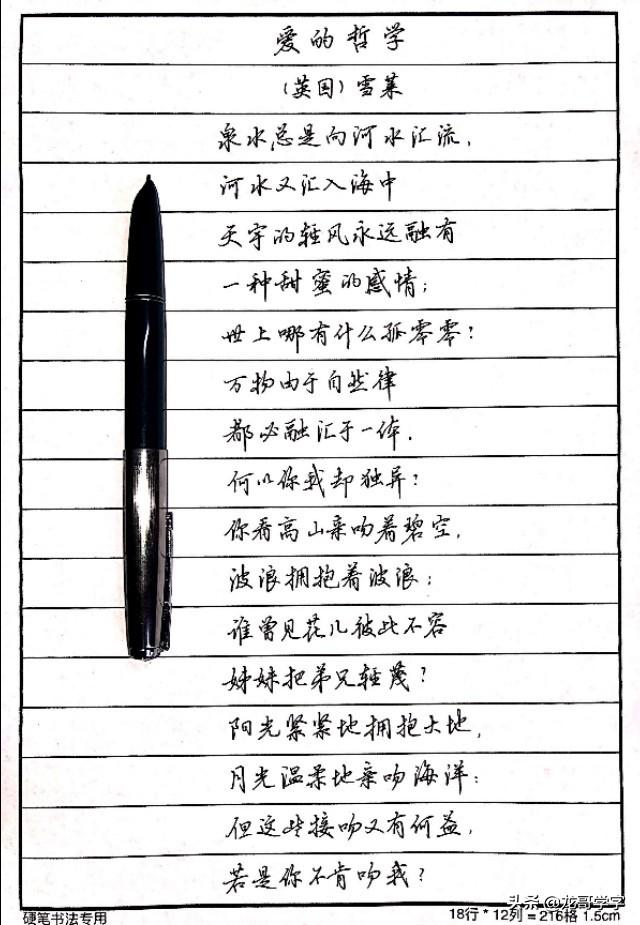 爱的哲学
(英国)雪莱
泉水总是向河水汇流,
河水又汇入海中
天宇的轻风永远融有
一种甜蜜的感情;
世上哪有什么孤零零?
万物由于自然律
都必融汇于一体.
何以你我却独异?
你看高山亲吻着碧空,
波浪拥抱着波浪;
谁曾见花儿彼此不容
姊妹把弟兄轻蔑?
阳光紧紧地拥抱大地,
月光温柔地亲吻海洋:
但这些接吻又有何益,
若是你不肯吻我?
头条 @龙哥学字
硬笔书法专用 18行 * 12列 = 216格 1.5cm